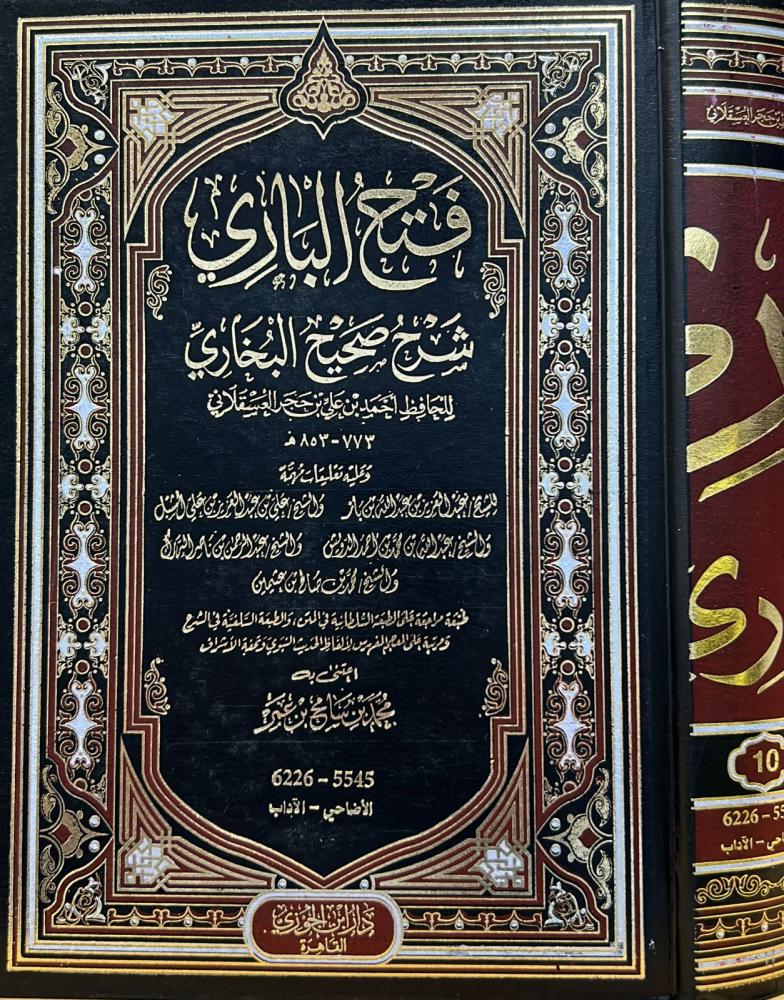 فَتْحُ البَارِي
شَرْحُ صَحِيحِ البُخَارِيِّ
لِلحَافِظِ أحْمَد بْن عَلِي بْن حَجَر العَسْقَلَانِي
٧٧٣-٨٥٣هـ
وَعَلَيْه تَعْلِيقَات مُهِمَّة
للشيخ/عبد العزيز بن عبد الله بن باز والشيخ/علي بن عبد العزيز بن علي الشبل
والشيخ/عبد الله بن محمد بن أحمد الدويش والشيخ/عبد الرحمن بن ناصر البراك
والشيخ/محمد بن صالح بن عثيمين
طبعة موافقة على الطبعة السلطانية في المتن، والطبعة السلفية في الشرح
ومرتبة على المعجم المفهرس لألفاظ الحديث النبوي وتحفة الأشراف
اعتنى به
محمد بن سامح بن عمر
5545-6226
الأضاحي - الآداب
دار ابن الجوزي
القاهرة
بن حجر العسقلاني
10
6226 - 55
حي - الآداب